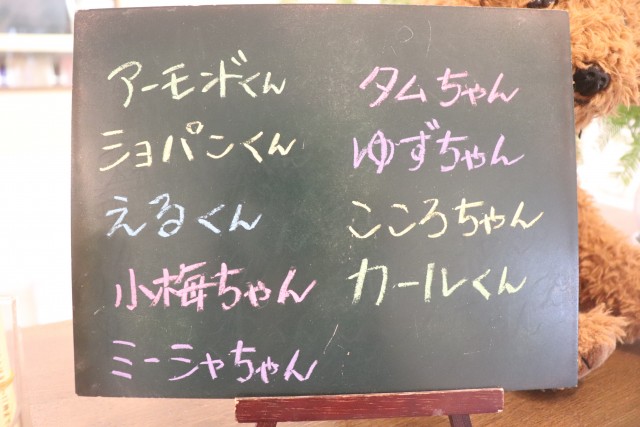 アーモンドくん
ショパンくん
えるくん
小梅ちゃん
ミーシャちゃん
タムちゃん
ゆずちゃん
こころちゃん
カールくん